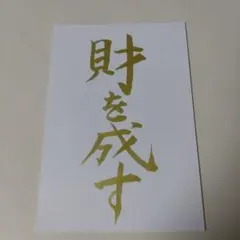 財を成す